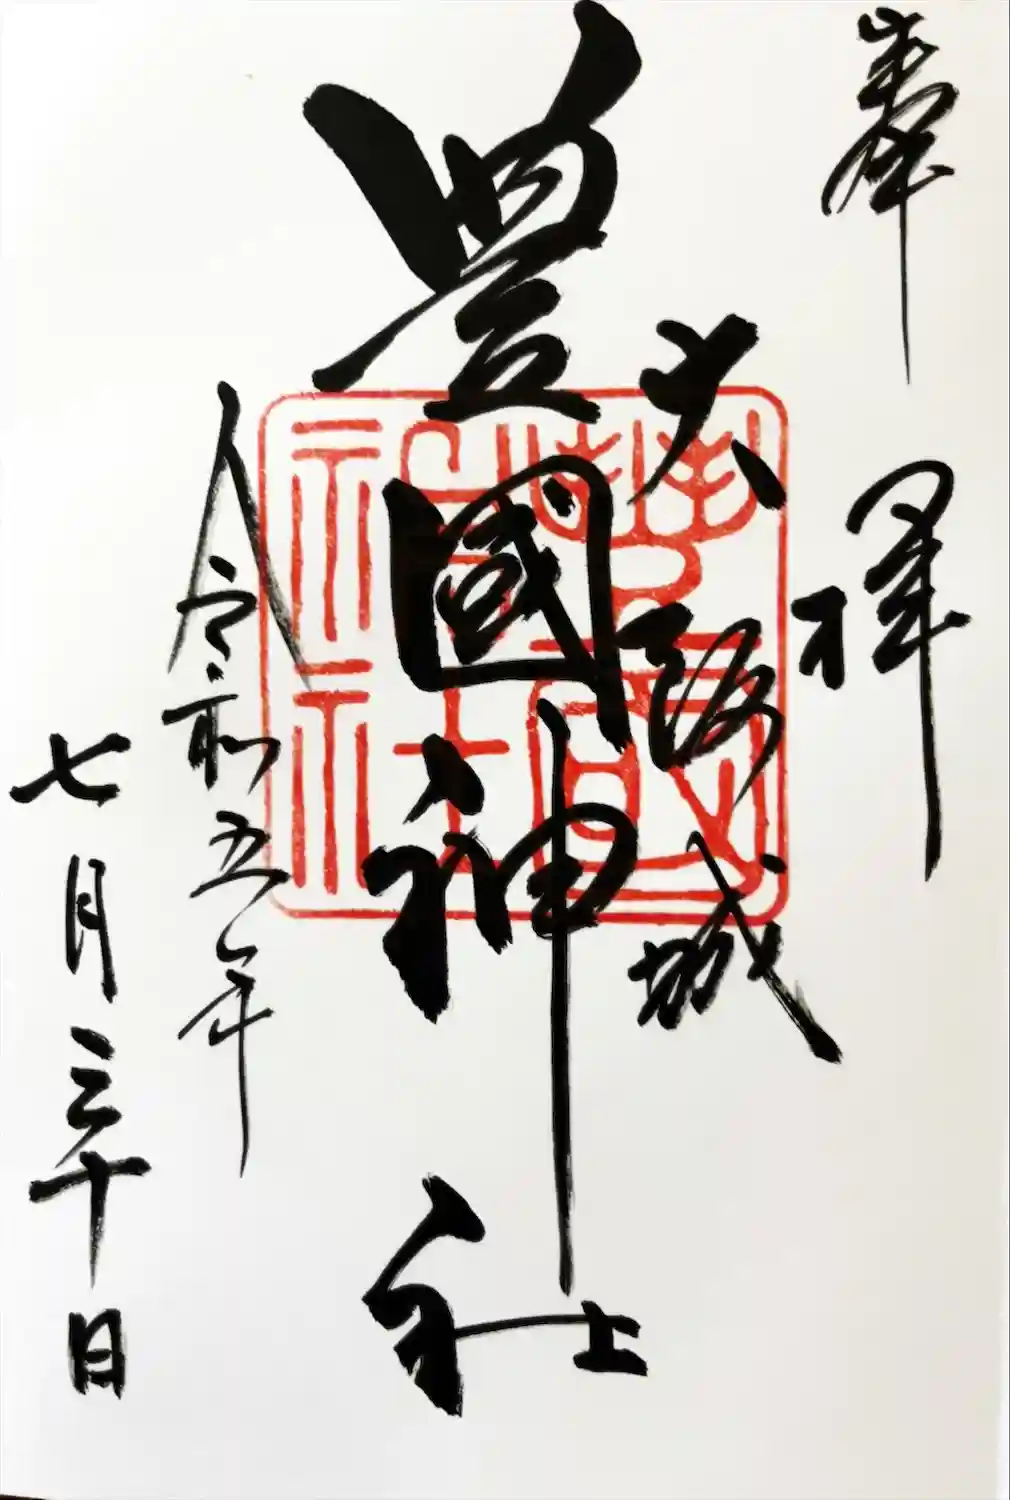 奉拝
大阪城
豊國神社
令和五年
七月三十日
豊國神社